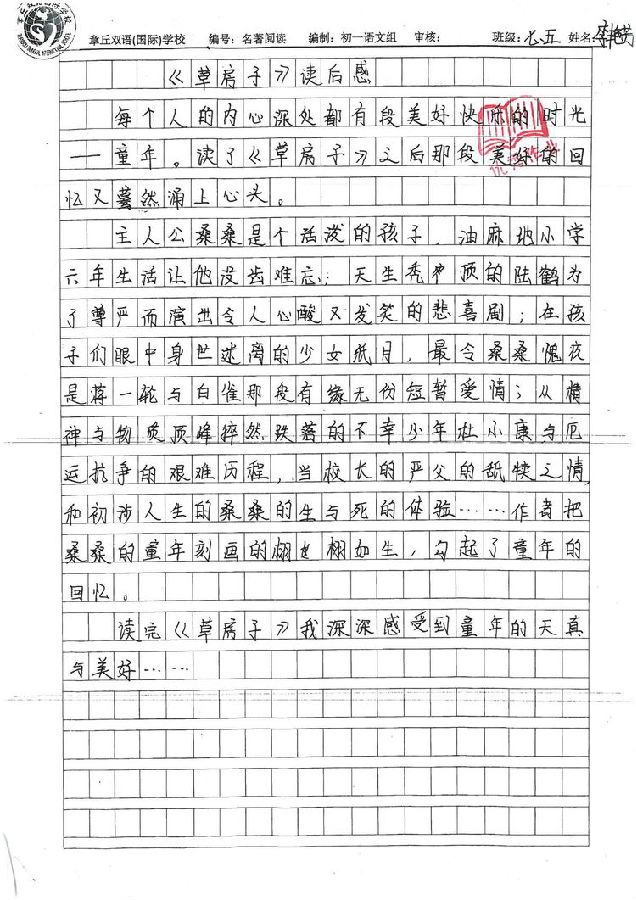 章丘双语(国际)学校 编号:名著阅读 编制:初一语文组 审核: 班级:七五 姓名:
《草房子》读后感
每个人的内心深处都有段美好快乐的时光
——童年。读了《草房子》之后那段美好的回
忆又蓦然涌上心头。
主人公桑桑是个活泼的孩子,油麻地小学
六年生活让他没齿难忘:天生秃顶的陆鹤为
了尊严而演出令人心酸又发笑的悲喜剧;在孩
子们眼中身世迷离的少女纸月,最令桑桑愧疚
是蒋一轮与白雀那段有缘无份短暂爱情;从精
神与物质顶峰猝然跌落的不幸少年杜小康与厄
运抗争的艰难历程,当校长的严父的舐犊之情
和初涉人生的桑桑的生与死的体验……作者把
桑桑的童年刻画的栩栩如生,勾起了童年的
回忆。
读完《草房子》我深深感受到童年的天真
与美好……